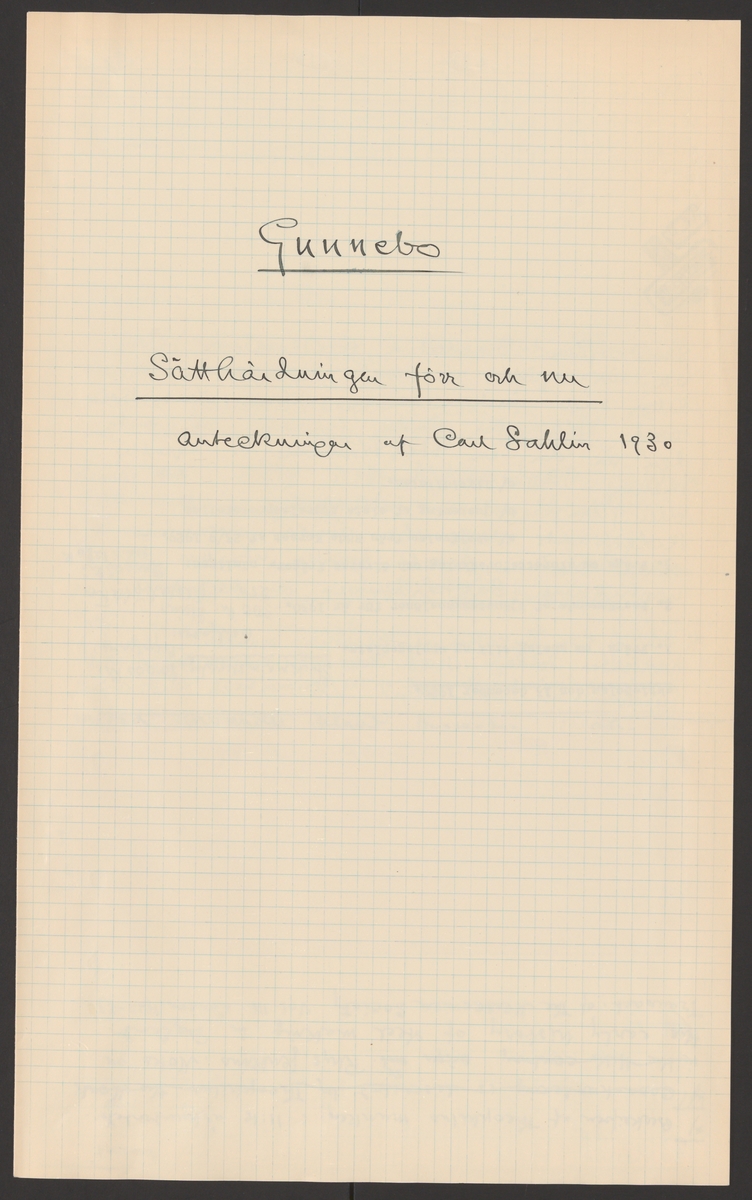 Gunnebo
Sätthärdningen förr och nu
Anteckningar af Carl Sahlin 1930